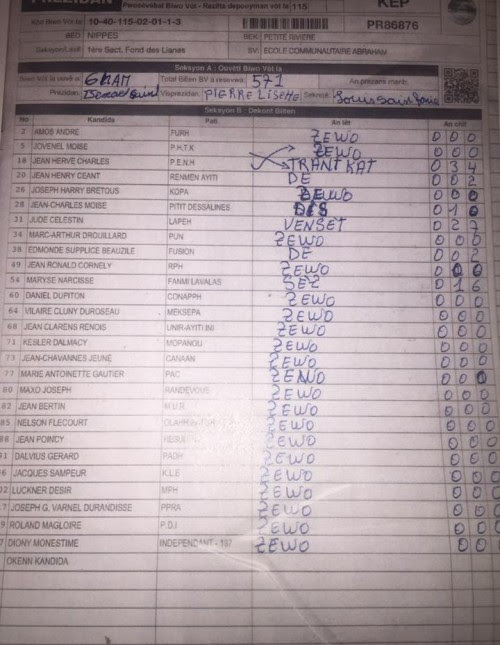 PREZIDAN Pwosèvèbal Biwo Vòt - Rezilta depouyman vòt la 115 KEP
Kòd Biwo Vòt la: 10-40-115-02-01-1-3 PR86876
DEP. NIPPES BEK PETITE RIVIERE
Seksyon/ 1ère Sect, Fond des Lianes SV: ECOLE COMMUNAUTAIRE ABRAHAM
Seksyon A : Ouvèti Biwo Vòt la
Biwo Vòt la ouvè a: 6h AM Total Bilten BV a resevwa: 571 An prezans manb:
Prezidan: Visprezidan: PIERRE LISEME Sekretè:
Seksyon B : Dekont Bilten
No Kandida Pati An lèt An chif
2 AMOS ANDRE PURH ZEWO 0 0 0
5 JOVENEL MOISE P.H.T.K ZEWO 0 0 0
18 JEAN HERVE CHARLES P.E.N.H TRANT KAT 0 3 4
20 JEAN HENRY CEANT RENMEN AYITI DE 0 0 2
26 JOSEPH HARRY BRETOUS KOPA ZEWO 0 0 0
28 JEAN-CHARLES MOISE PITIT DESSALINES DIS 0 1 0
31 JUDE CELESTIN LAPEH VENSET 0 2 7
34 MARC-ARTHUR DROUILLARD PUN ZEWO 0 0 0
38 EDMONDE SUPPLICE BEAUZILE FUSION DE 0 0 2
49 JEAN RONALD CORNELY RPH ZEWO 0 0 0
54 MARYSE NARCISSE FANMI LAVALAS SEZ 0 1 6
60 DANIEL DUPITON CONAPPH ZEWO 0 0 0
64 VILAIRE CLUNY DUROSEAU MEKSEPA ZEWO 0 0 0
68 JEAN CLARENS RENOIS UNIR-AYITI INI ZEWO 0 0 0
71 KESLER DALMACY MOPANOU ZEWO 0 0 0
73 JEAN-CHAVANNES JEUNE CANAAN ZEWO 0 0 0
77 MARIE ANTOINETTE GAUTIER PAC ZEWO 0 0 0
80 MAXO JOSEPH RANDEVOUS ZEWO 0 0 0
82 JEAN BERTIN M.U.R ZEWO 0 0 0
85 NELSON FLECOURT ZEWO 0 0 0
88 JEAN POINCY ZEWO 0 0 0
91 DALVIUS GERARD PADH ZEWO 0 0 0
6 JACQUES SAMPEUR K.L.E ZEWO 0 0 0
02 LUCKNER DESIR MPH ZEWO 0 0 0
7 JOSEPH G. VARNEL DURANDISSE PPRA ZEWO 0 0 0
9 ROLAND MAGLOIRE P.D.I ZEWO 0 0 0
7 DIDNY MONESTIME INDEPENDANT - 137 ZEWO 0 0 0
OKENN KANDIDA